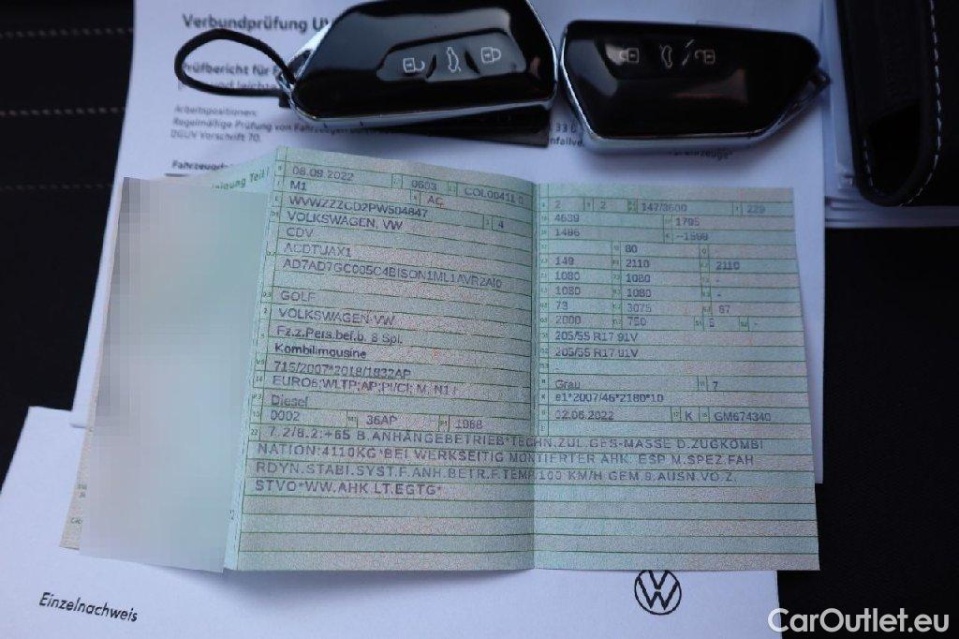 Verbundprüfung
Prüfbericht für
und leichte
Arbeitspositionen:
Regelmäßige Prüfung von Fahrzeugen
DGUV Vorschrift 70.
08.09.2022 0603
M1 AC
VOLKSWAGEN, VW 4
CDV
ACDTUAX1
GOLF
VOLKSWAGEN, VW
Fz.z.Pers.bef.b. 8 Spl.
Kombilimousine
715/2007*2018/1832AP
EURO6;WLTP;AP;PI/CI; M, N1 I
Diesel
0002 36AP 1968
2 2 147/3500 229
4639 1795
80
149 2110 2110
1080 1080 -
1080 1080 -
73 3075 67
2000 750 5 -
205/55 R17 91V
205/55 R17 91V
Grau 7
e1*2007/46*2180*10
02.06.2022 K GM674340
7.2/8.2:+65 B.ANHÄNGEBETRIEB*TECHN.ZUL.GES-MASSE D.ZUGKOMBI
NATION:4110KG*BEI WERKSEITIG MONTIERTER AHK. ESP M.SPEZ.FAH
RDYN.STABI.SYST.F.ANH.BETR.F.TEMP.100 KM/H GEM.9.AUSN.VO.Z.
STVO*WW.AHK.LT.EGTG*
Einzelnachweis
CarOutlet.eu